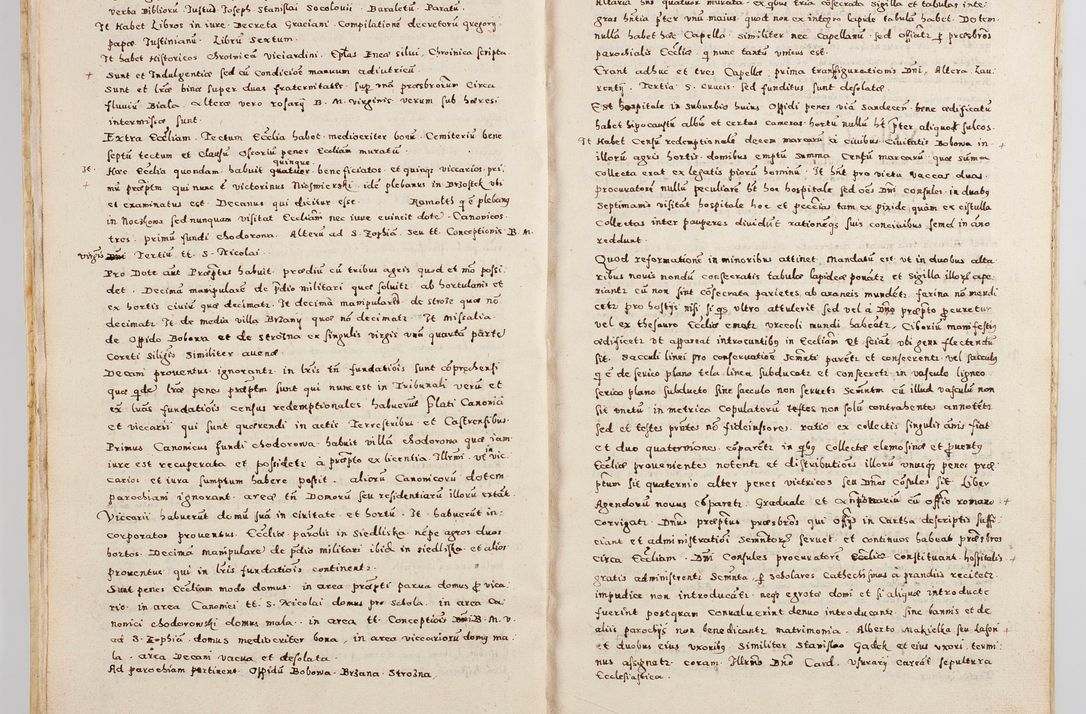 verba Bibliorũ Justus Joseph Stanislai Socolouii · Baraletũ · Paratũ ·
Jt Habet Libros in iure · Decreta Graciani · Compilatione decretorũ gregorij
papæ Justinianũ · Librũ Sextum ·
Jt habet Historicos Chroinicã Viciardini · Eplas Eneæ siluii · Chroinica scripta
Sunt et Indulgentiæ sed cũ Condicioẽ manuum adiutricũ
Sunt et lræ binæ super duas fraternitates · vnã præsbrorũm Circa
fluuiũ Biala · Alteræ vero rosarij B. M. virginis verum sub hæresi
intermissæ sunt ·
Extra Eccliam · Tectum Ecclia habet mediocriter bonũ · Cemiteriũ bene
septũ tectum et Clausũ Osсoriũ penes Eccliam muratũ ·
Jt · Hæc Ecclia quondam habuit quatuor quinque beneficiatos · et quinqȝ viccarios · pri,
mũ præptm qui nunc ẽ victorinus Niosmierski · idẽ plebanus in Brzostek vbi
et examinatus est · Decanus qui dicitur esse · Ramolth q ẽ plebanȝ
in Noczkowa sed nunquam visitat Eccliam nec iure euincit dote · Canonicos ·
tres · primũ fundi chodorona · Alterũ ad S. Zophiã · Seu tt · Conceptionis B. M.
virgis Tertiũ tt · S · Nicolai ·
Pro Dote aut Præptus habuit · prædiũ cũ tribus agris quod et nõ possi
det · Decimã manipularẽ de pdio militari quæ soluitr ab hortulanis et
ex hortis ciuiũ quæ decimatr · Jt decimã manipularẽ · de stroze quæ nõ
decimatr Jt · de media villa Brzany quæ nõ decimatr · Jt missalia ·
de Oppido Bobowa et de strozna ex singulis virgis vnũ quartã parte
Coreti Siliginis Similiter auenæ ·
Decani prouentus ignorantr · in lris tñ fundatiois sunt cõprehensi
quæ qde lræ penes præptm sunt qui nunc est in Tribunali verũ et
ex lras fundatiois census redemptionales habuerũt plati Canonici
et viccarii qui sunt quærendi in actis Terrestribus et Castrensibus ·
Primus Canonicus fundi chodorowa · habuit villã chodorono quæ iam
iure est recuperata et possidetr à præpto ex licentia Illrmi · vt in vic
carios et iura sumptum habere possit · aliorũ Canonicorũ dotem
parochiani ignorant · areæ tñ Donorũ seu residentiarũ illorũ extãt ·
Viccarii habuerũt domũ suã in ciuitate et hortũ · Jt · habuerũt in,
corporatos prouentus · Eccliæ · parolis in Siedliska næpe agros duos
hortos · Decimã manipulare de pdio militari ibid in siedliska et alios
prouentus · qui in lris fundatiois continentr ·
Sunt penes Eccliam modo domus · in area præpti parua domus p vica,
rio · in area Canonici tt · S · Nicolai domus pro schola · in area ca,
nonici chodorowski domus mala · in area tt · Conceptiois B · M · v ·
ad S · Zophiã · domus mediocriter bona, in area viccariorũ domȝ ma
la · area Decani vacua et desolata ·
Ad parochiam pertinent Oppidũ Bobowa · Brzana · Strozna,
Altaria hns quatuor murata · ex qbus tria cõsecrata Sigilla et tabulas inte
gras hntia pter vnũ maius quod non ex integro lapide tabulã habet · Dotem
nullã habet hæc Capella · similiter nec Capellanũ · sed officiatr p præsbros
parochialis Eccliæ q nunc tantũ vnicus est ·
Erant adhuc et tres Capellæ · prima transfigurationis Dni, Altera Lau,
rentij · Tertia · S · Crucis · sed funditus sunt desolatæ ·
Est hospitale in suburbio huius Oppidi penes viã Sandecẽn · bene ædificatũ
habet hipocaustũ albũ et certas cameras · hortũ nullũ ht pter aliquot sulcos ·
Jt Habet Censũ redemptionale decem marcarũ à ciuibus Ciuitatis Bobowa in
illorũ agris hortis · domibus emptũ summa Censũ marcarũ · quæ summa
collecta erat ex legatis piorũ hominũ · Jt hnt pro victu vaccas duas ·
procuratorẽ nullũ peculiarẽ ht hoc hospitale sed oẽs Dni consules · in duabȝ
septimanis visitãt hospitale hoc et pecũia tam ex pixide quàm ex cistulla
collectas inter pauperes diuidũt rationẽqȝ suis conciuibus semel in ãno
reddunt ·
Quod reformationẽ in minoribus attinet · Mandatũ est vt in duobus alta
ribus nouis nondũ consecratis tabulæ lapideæ ponãtr et sigilla illorȝ ape,
riantr cũ non sint cõsecrata parietes ab araneis mundẽtr farina nõ mendi
cetr pro hostijs nisi si qs vltro attulerit sed vel à Dno præpto procuretur
vel ex thesauro Eccliæ ematr vrceoli mundi habeãtr, Ciboriũ manifestiȝ
ædificetr vt appareat introeuntibȝ in Eccliam Et sciat vbi genu flectendũ
sit · Sacculi linei pro conseruatioẽ Semti parẽtr et consecrentr vel sacculȝ
q ẽ de serico plano tela linea subducatr et consecretr in vasculo ligneo ·
serico plano subducto sine sacculo non seruetr Semntm cũ illud vasculũ non
sit vnctũ · in metrica Copulatorũ testes non solũ contrahentes annotẽtr
sed et testes pntes nõ fideiussores · ratio ex collectis singulis ãnis fiat
et duo quaterniones cõparẽtr in qbȝ collectæ elemosinæ et puentȝ
Eccliæ prouenientes notentr et distributioẽs illorũ vnusqȝ penes præ,
ptum sit quaternio alter penes vitricos seu Dnos Cõsules sit · Liber
Agendorũ nouus cõparetr · Graduale et Antiphonariũ cũ Officio romano
corrigatr · Dnus præptus præsbros qui Officijs in Cartha descriptis suffi,
ciant et administratioi Semntorȝ seruet et continuos habeat præsbros
circa Eccliam · Dni Consules procuratorẽ Eccliæ constituant hospitalis
gratis administrentr Semnta · p scholares Cathechismus à prandiis recitetr
impudicæ non introducãtr · neqȝ ægrotæ domi et si aliquæ introductæ
fuerint postquam conualuerint denuo introducantr · sine bannis et de
aliis parochijs non benedicantr matrimonia · Alberto Makielka seu Lason
et duobus eius vxoribȝ Similiter Stanislao Gadek et eius vxori · termi
nus assignatr coram Illrmo Dno Card · vsurarij careãt sepultura
Ecclesiastica ·